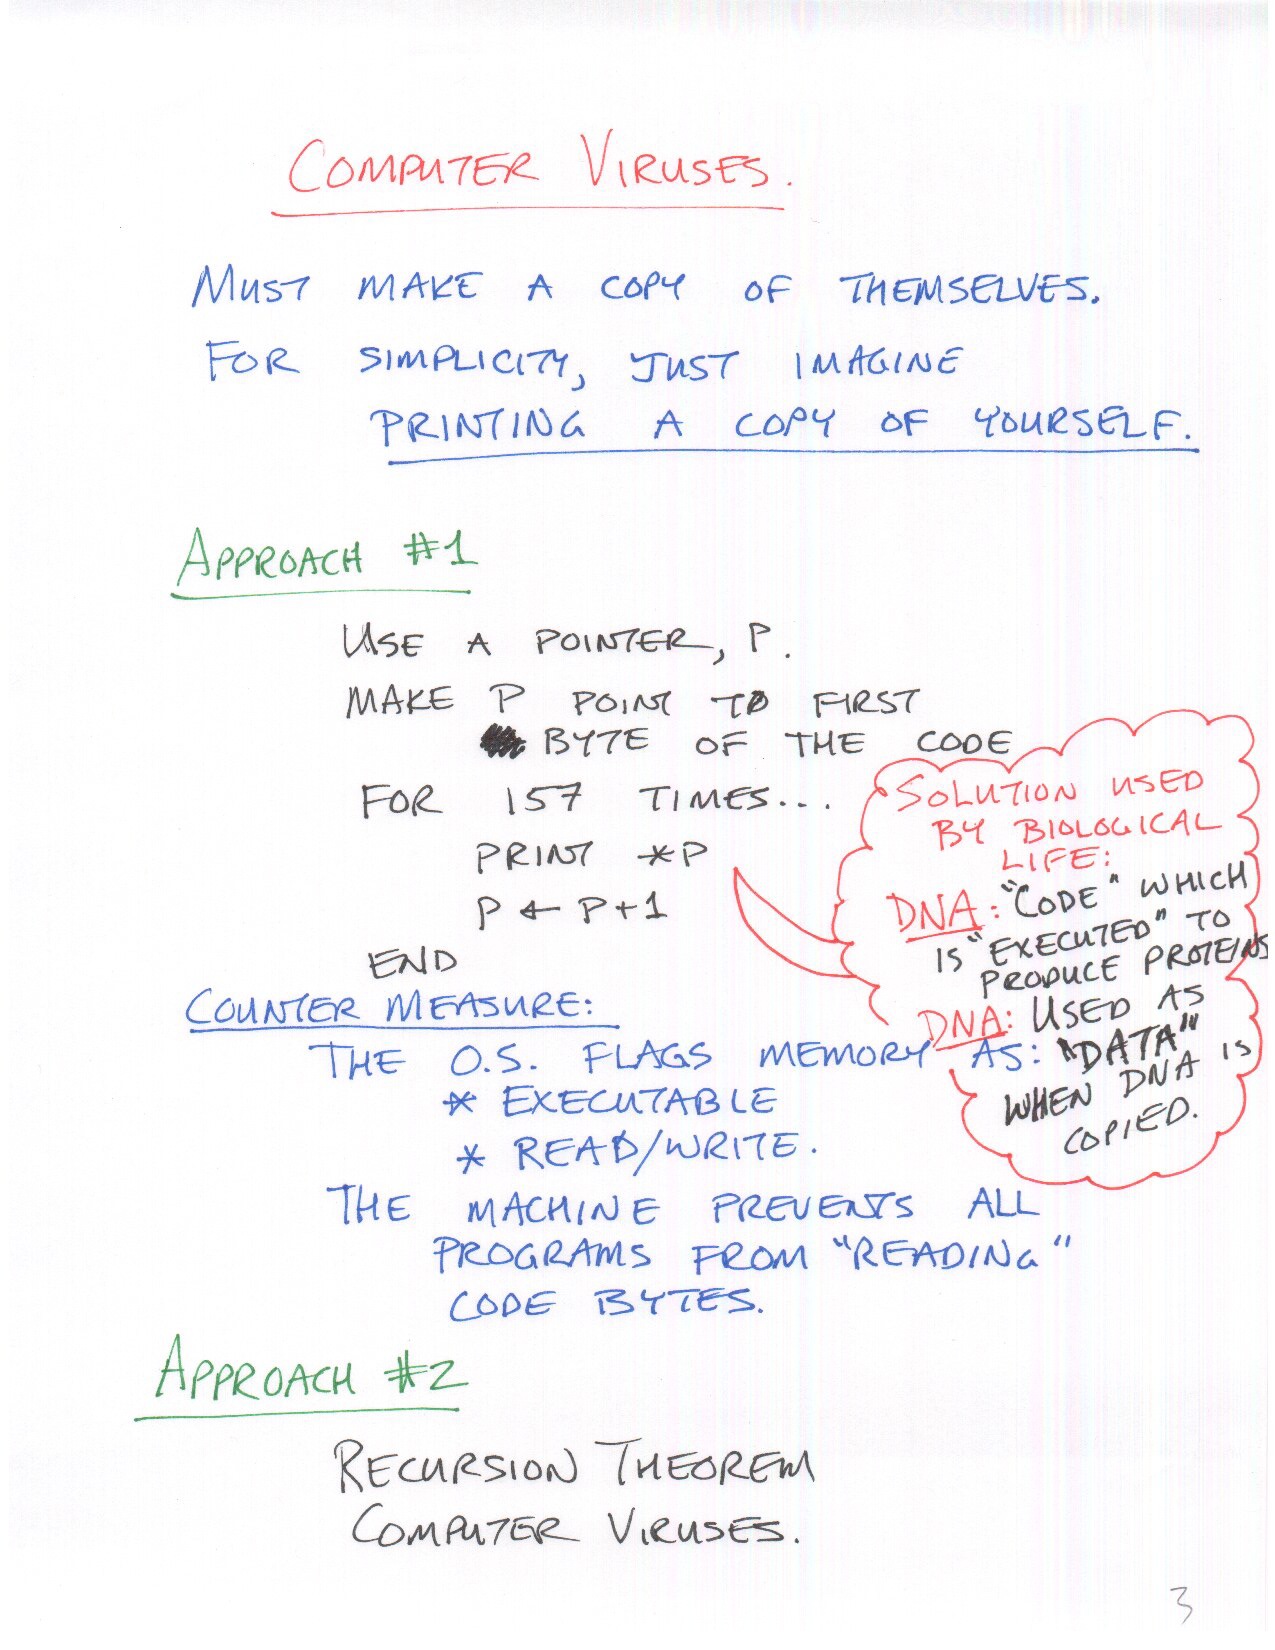 COMPUTER VIRUSES.
MUST MAKE A COPY OF THEMSELVES.
FOR SIMPLICITY, JUST IMAGINE
PRINTING A COPY OF YOURSELF.
APPROACH #1
USE A POINTER, P.
MAKE P POINT TO FIRST
BYTE OF THE CODE
FOR 157 TIMES...
PRINT *P
P ← P+1
END
SOLUTION USED
BY BIOLOGICAL
LIFE:
DNA: "CODE" WHICH
IS "EXECUTED" TO
PRODUCE PROTEINS
DNA: USED AS
"DATA"
WHEN DNA IS
COPIED.
COUNTER MEASURE:
THE O.S. FLAGS MEMORY AS:
* EXECUTABLE
* READ/WRITE.
THE MACHINE PREVENTS ALL
PROGRAMS FROM "READING"
CODE BYTES.
APPROACH #2
RECURSION THEOREM
COMPUTER VIRUSES.
3